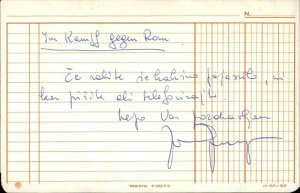 N.
Im Kampf gegen Rom.
Če rabite še kakšno pojasnilo, mi
kar pišite ali telefonirajte.
Lepo Vas pozdravljam